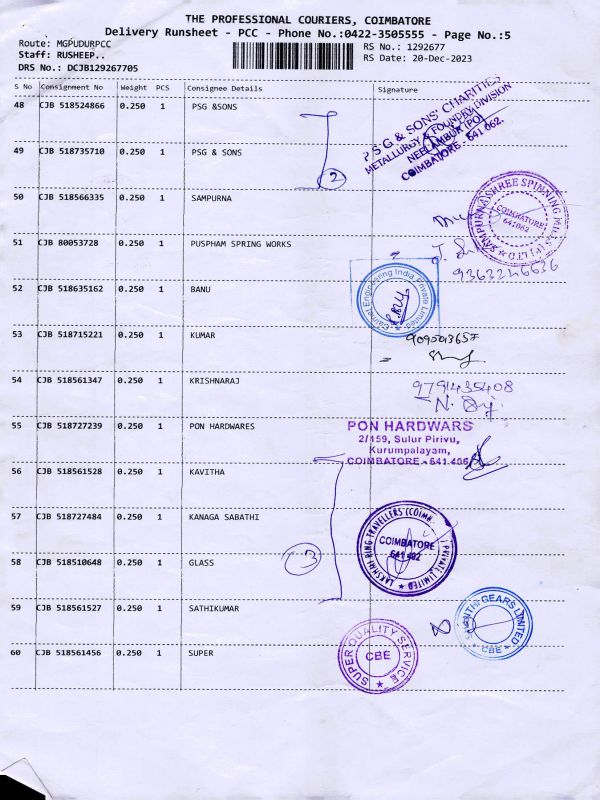 THE PROFESSIONAL COURIERS, COIMBATORE
Delivery Runsheet - PCC - Phone No.:0422-3505555 - Page No.:5
Route: MGPUDURPCC
RS No.: 1292677
Staff: RUSHEEP..
RS Date: 20-Dec-2023
DRS No.: DCJB129267705
S No Consignment No Weight PCS Consignee Details Signature
48 CJB 518524866 0.250 1 PSG &SONS
P S G & SONS' CHARITIES
METALLURGY & FOUNDRY DIVISION
NEELAMBUR (PO)
COIMBATORE - 641 062.
49 CJB 518735710 0.250 1 PSG & SONS
2
50 CJB 518566335 0.250 1 SAMPURNA
SAMPURNA SHREE SPINNING MILLS (P) LTD
COIMBATORE
641062
51 CJB 80053728 0.250 1 PUSPHAM SPRING WORKS
9363246636
52 CJB 518635162 0.250 1 BANU
Engineering India Private Limited
53 CJB 518715221 0.250 1 KUMAR
54 CJB 518561347 0.250 1 KRISHNARAJ
9791435408
55 CJB 518727239 0.250 1 PON HARDWARES
PON HARDWARS
2/159, Sulur Pirivu,
Kurumpalayam,
COIMBATORE - 641 406
56 CJB 518561528 0.250 1 KAVITHA
57 CJB 518727484 0.250 1 KANAGA SABATHI
TRAVELLERS (COIMBATORE) PRIVATE LIMITED
COIMBATORE
641 402
58 CJB 518510648 0.250 1 GLASS
3
59 CJB 518561527 0.250 1 SATHIKUMAR
GEARS LIMITED
CBE
60 CJB 518561456 0.250 1 SUPER
SUPER QUALITY SERVICE
CBE